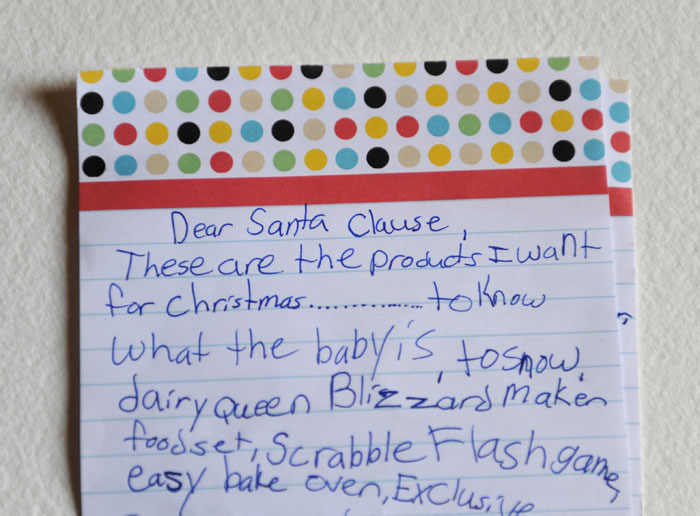 Dear Santa Clause,
These are the products I want
for christmas.............. to know
what the baby is, to snow,
dairy queen Blizzard maker
food set, Scrabble Flash game,
easy bake oven, Exclusive